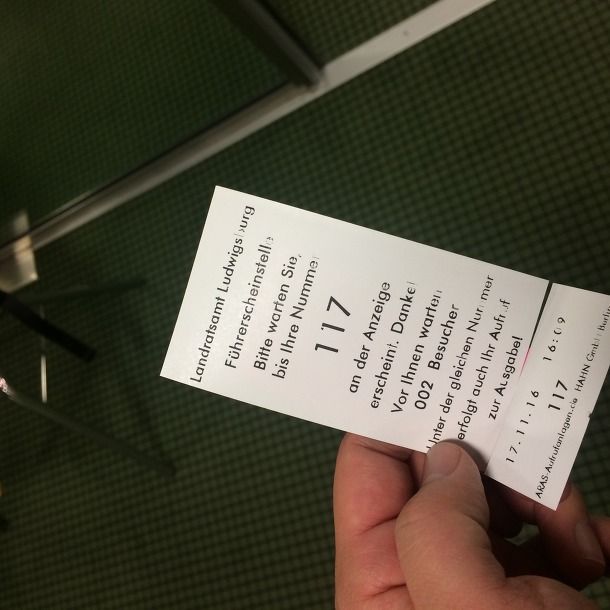 Landratsamt Ludwigsburg
Führerscheinstelle
Bitte warten Sie,
bis Ihre Nummer
117
an der Anzeige
erscheint. Danke!
Vor Ihnen warten
002 Besucher
Unter der gleichen Nummer
erfolgt auch Ihr Aufruf
zur Ausgabe!
17.11.16 16:09
117
ARAS-Aufrufanlagen.de HAHN GmbH Berlin